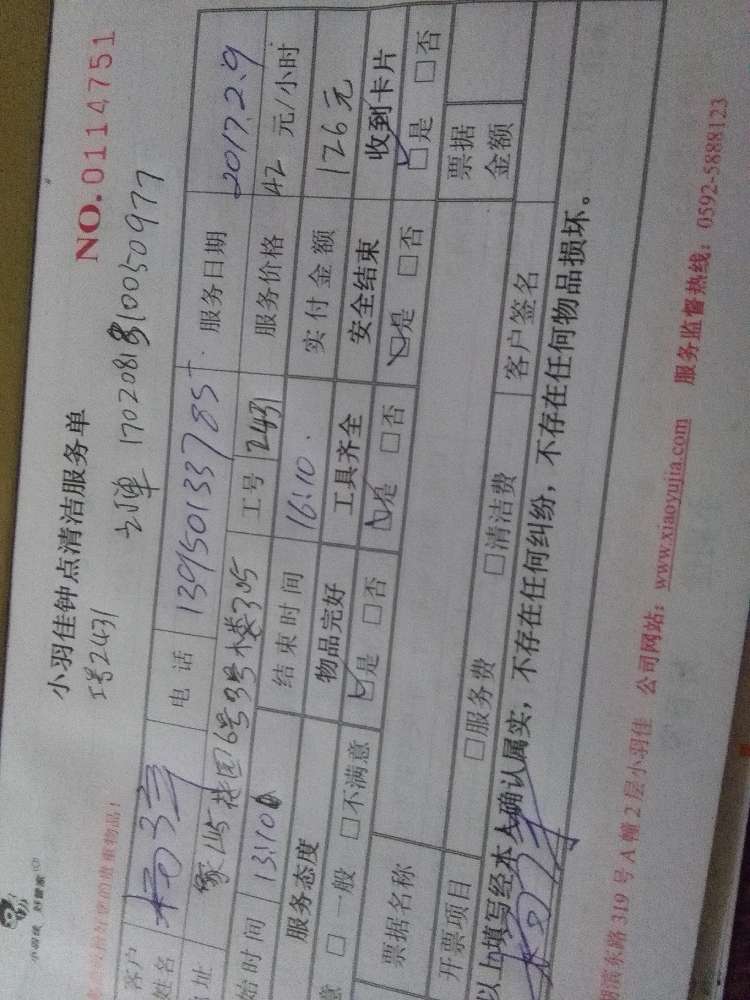 小羽佳 好管家
小羽佳钟点清洁服务单
NO.0114751
工号2431
订单 170208810050977
的贵重物品！
客户姓名
电话 13950133785
服务日期 2017.2.9
址 象屿花园6号9号楼305
工号 2431
服务价格 42 元/小时
始时间 13:10
结束时间 16:10
实付金额 126元
服务态度 物品完好 工具齐全 安全结束 收到卡片
意 □ 一般 □不满意 ☑是 □否 ☑是 □否 ☑是 □否 ☑是 □否
票据名称
票据金额
开票项目 □服务费 □清洁费
客户签名
以上填写经本人确认属实，不存在任何纠纷，不存在任何物品损坏。
滨东路 319 号 A 幢 2 层小羽佳 公司网站：www.xiaoyujia.com 服务监督热线：0592-5888123